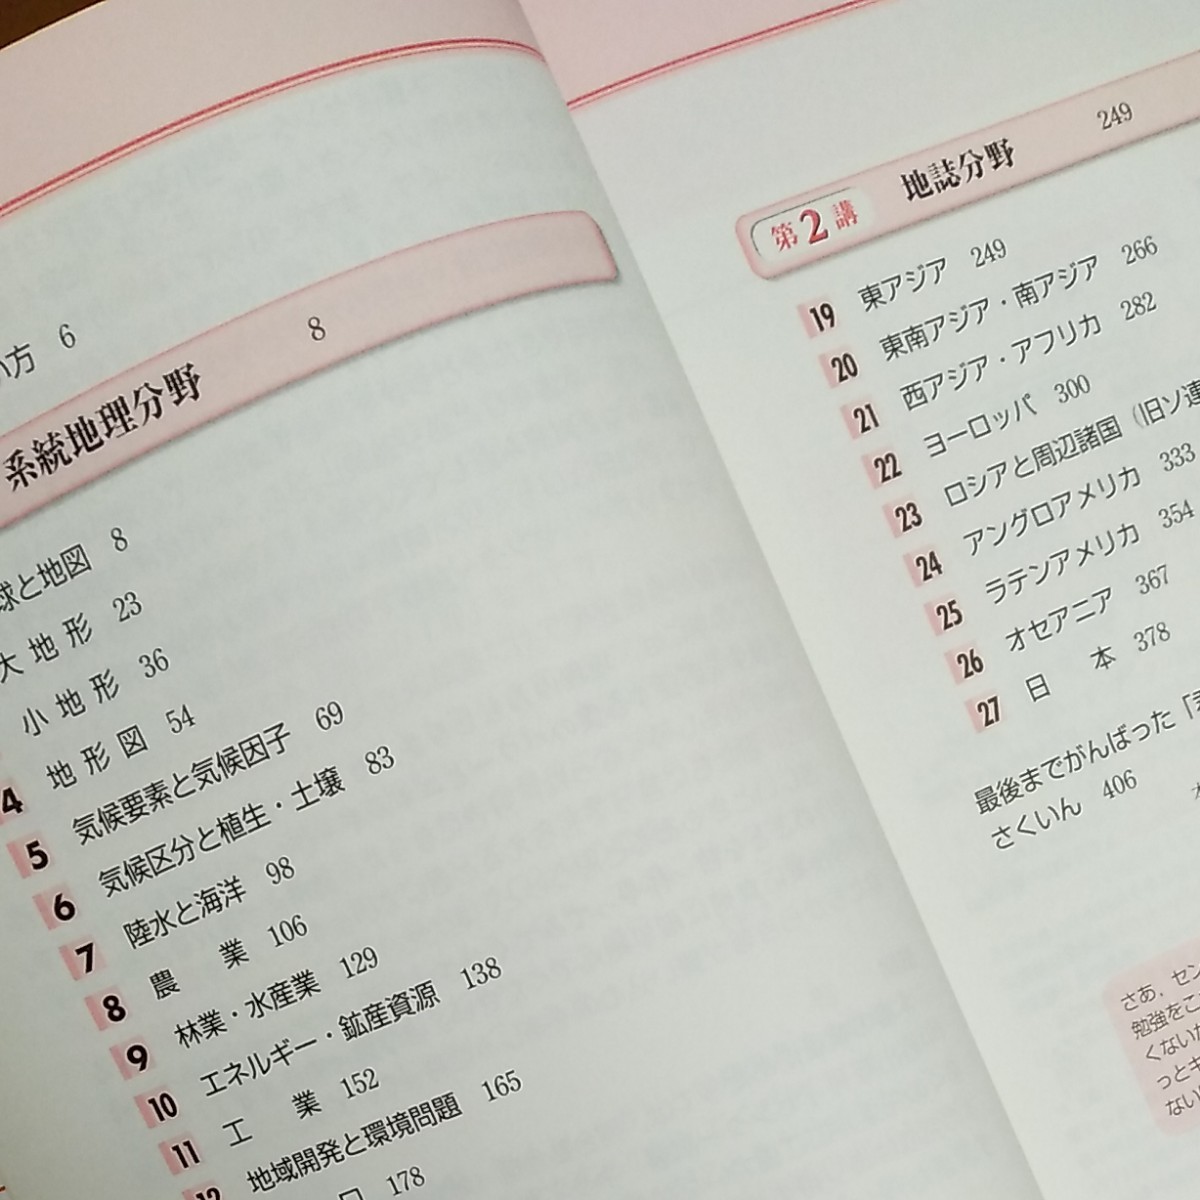 い方 6
系統地理分野 8
球と地図 8
大地形 23
小地形 36
4 地形図 54
5 気候要素と気候因子 69
6 気候区分と植生・土壌 83
7 陸水と海洋 98
8 農業 106
9 林業・水産業 129
10 エネルギー・鉱産資源 138
11 工業 152
12 地域開発と環境問題 165
口 178
第2講 地誌分野 249
19 東アジア 249
20 東南アジア・南アジア 266
21 西アジア・アフリカ 282
22 ヨーロッパ 300
23 ロシアと周辺諸国(旧ソ連
24 アングロアメリカ 333
25 ラテンアメリカ 354
26 オセアニア 367
27 日本 378
最後までがんばった「
さくいん 406
さあ,セン
勉強をこ
くないた
っとキ
ない